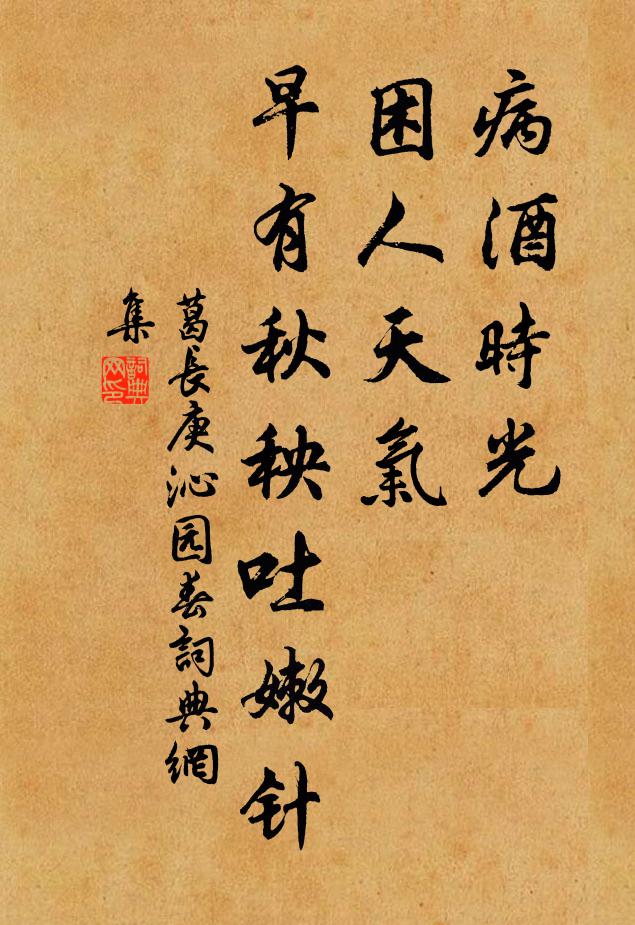 病酒時光
困人天氣
早有秋秧吐嫩针
葛長庚沁园春詞典網
集
詞典
网印